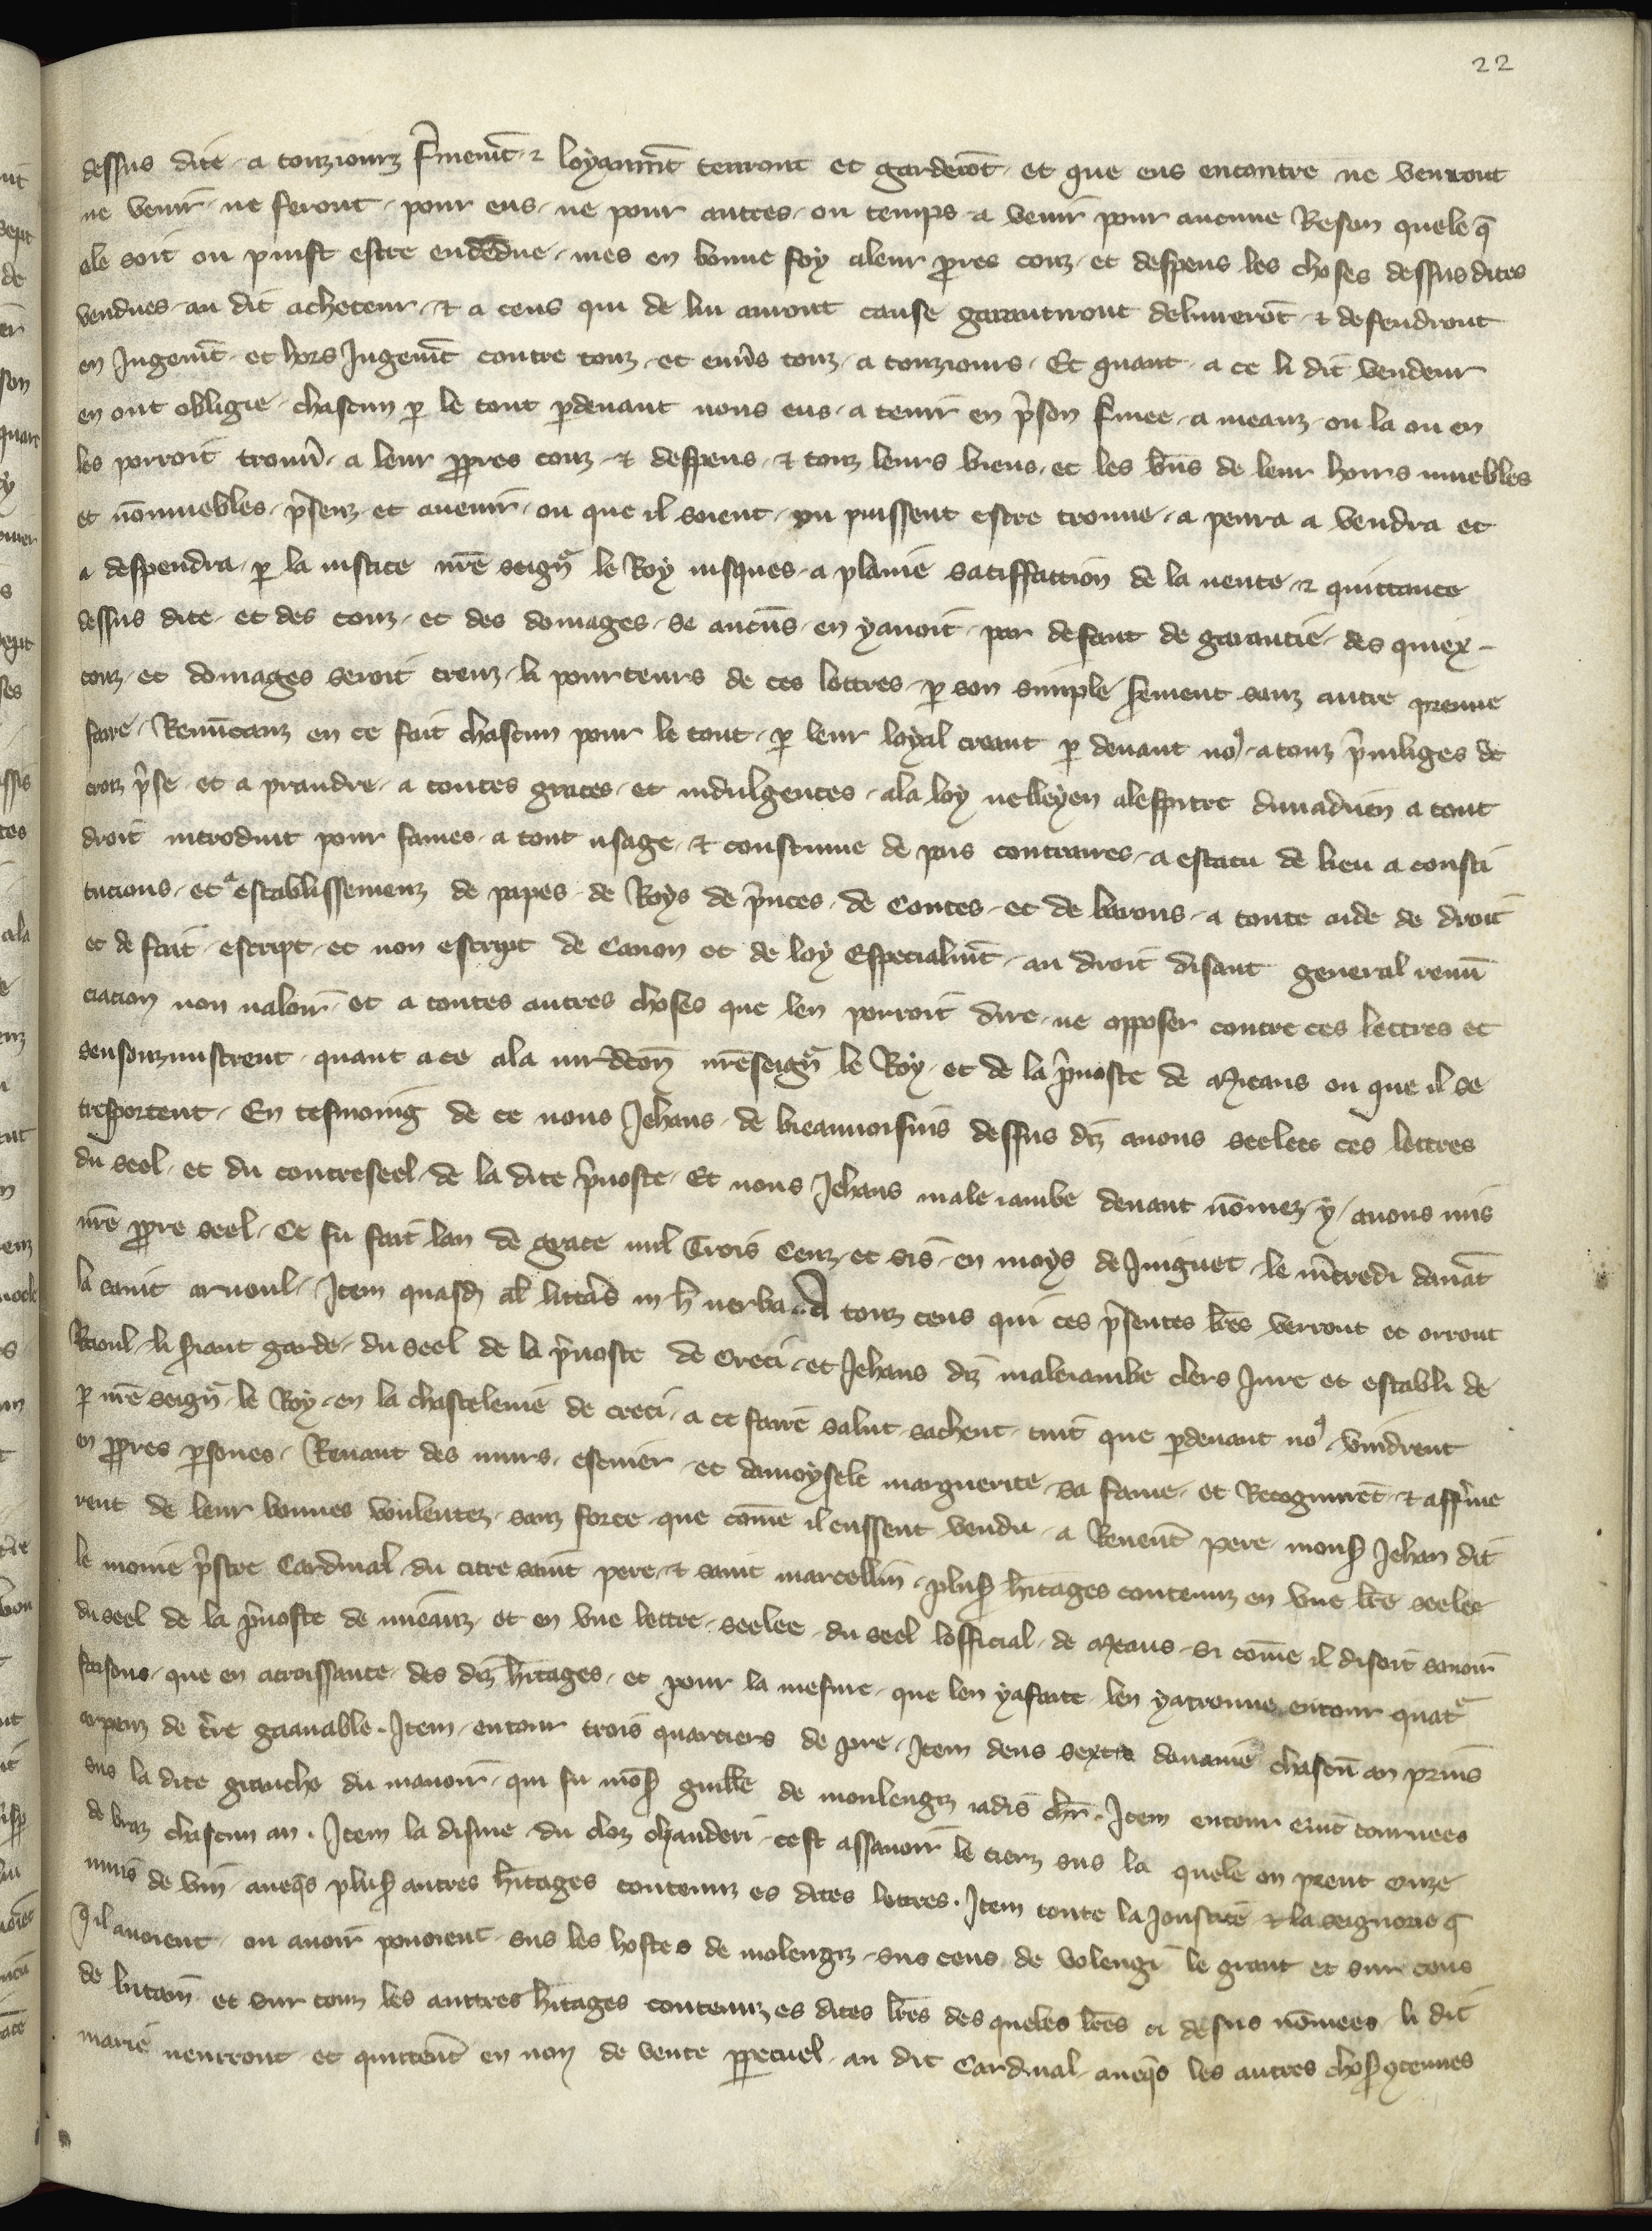 22
dessus dite a touziourz f̄memēt ⁊ loyaumēt tenront et garderōt et que eus encontre ne venront
ne venir ne feront pour eus ne pour autres ou temps a venir pour aucune Reson quele q̄
ele soit ou puist estre entēdue mes en bonne foy a leur ꝓpres couz et despens les choses dessus dites
vendues au dit acheteur et a ceus qui de lui auront cause garantiront deliuerrōt ⁊ defendront
en Jugemēt et hors Jugemēt contre touz et enũs touz a touziours Et quant a ce li dit vendeur
en ont obligie chascun ꝑ le tout ꝑdeuant nous eus a tenir en p̃son f̄mee a meauz ou la ou en
les porroit trouũ a leur ꝓpres couz ⁊ despens ⁊ touz leurs biens et les bn̄s de leur hoirs muebles
et nōmuebles p̃senz et auenir ou que il soient ou puissent estre trouue a penra a vendra et
a despendra ꝑ la iustice nr̄e seign̄ le Roy iusques a plaine satiffaction de la uente ⁊ quittance
dessus dite et des couz et des domages se aucūs en yauoit par defaut de garantie des quiex
couz et domages seroit creuz li pourteurs de ces lettres ꝑ son simple serement sanz autre preuue
faire Renūcanz en ce fait chascun pour le tout ꝑ leur loyal creant ꝑ deuant no⁹ a touz p̃uiliges de
croiz p̃se et a prandre a toutes graces et indulgences a la loy uelleyen a lespitre diuaduen a tout
droit introduit pour fames a tout usage et coustume de pais contraires a estatu de lieu a consti
tucions et a establissemenz de papes de Roys de p̃nces de Contes et de barons a toute aide de droit
et de fait escript et non escript de Canon et de loy Especialmēt au droit disant general renū
ciacion non ualoir et a toutes autres choses que len porroit dire ne opposer contre ces lettres et
sensouzmistrent quant a ce a la iurdcōn nr̄eseign̄ le Roy et de la p̃uoste de Meaus ou que il se
tresportent En tesmoing de ce nous Jehans de bieauuoisins dessus dz auons seelees ces lettres
du seel et du contreseel de la dite p̃uoste Et nous Jehans male iambe deuant nōmez y auons mis
nr̄e ꝓpre seel Ce fu fait lan de grace mil Trois Cenz et sis en moys de Juignet le m̃credi deuāt
la saint arnoul Item quasd̄ al̄ litt̃as in h̄ uerba A touz ceus qui ces p̃sentes lr̄es verront et orront
Raoul li friant garde du seel de la p̃uoste de Creci et Jehans dz maleiambe clers Jure et establi de
ꝑ nr̄e seign̄ le Roy en la chastelenie de creci a ce faire salut sachent tuit que ꝑdeuant no⁹ vindrent
en ꝓpres ꝑsones Renaut des murs escuier et damoysele marguerite sa fame et Recognurēt ⁊ afferme
rent de leur bonnes voulentez sanz force que cōme il eussent vendu a Reuerēt pere monſ Jehan dit
le moine p̃stre Cardinal du titre saint pere ⁊ saint marcellin pluſ h̃itages contenuz en vne lr̄e seelee
du seel de la p̃uoste de mieauz et en vne lettre seelee du seel lofficial de Meaus si cōme il disoit sauoir
faisons que en acroissance des dz h̃itages et pour la mesure que len yafaite len yatrouue entour quat̃
arpenz de t̃re gaanable Item entour trois quartiers de pre Item deus sextrs dauaine chascū an prins
sus la dite granche du manoir qui fu mōſ guille de moulengz iadis ch̃r Item entour cinc couruees
de braz chascun an Item la disme du cloz chanderi cest assauoir le tierz sus la quele on prent onze
muis de vin auecq̄s pluſ autres h̃itages contenuz es dites lettres Item toute la Joustice ⁊ la seignorie q̄
il auoient ou auoir pouoient sus les hostes de molengz sus ceus de volengi le grant et sur ceus
de lutain et sur touz les auttres h̃itages contenuz es dites lr̄es des queles lr̄es ci desus nōmees li dit
marie uenrront et quittent en non de vente ꝑpetuel au dit Cardinal auecq̄s les autres choſ ꝯtenues